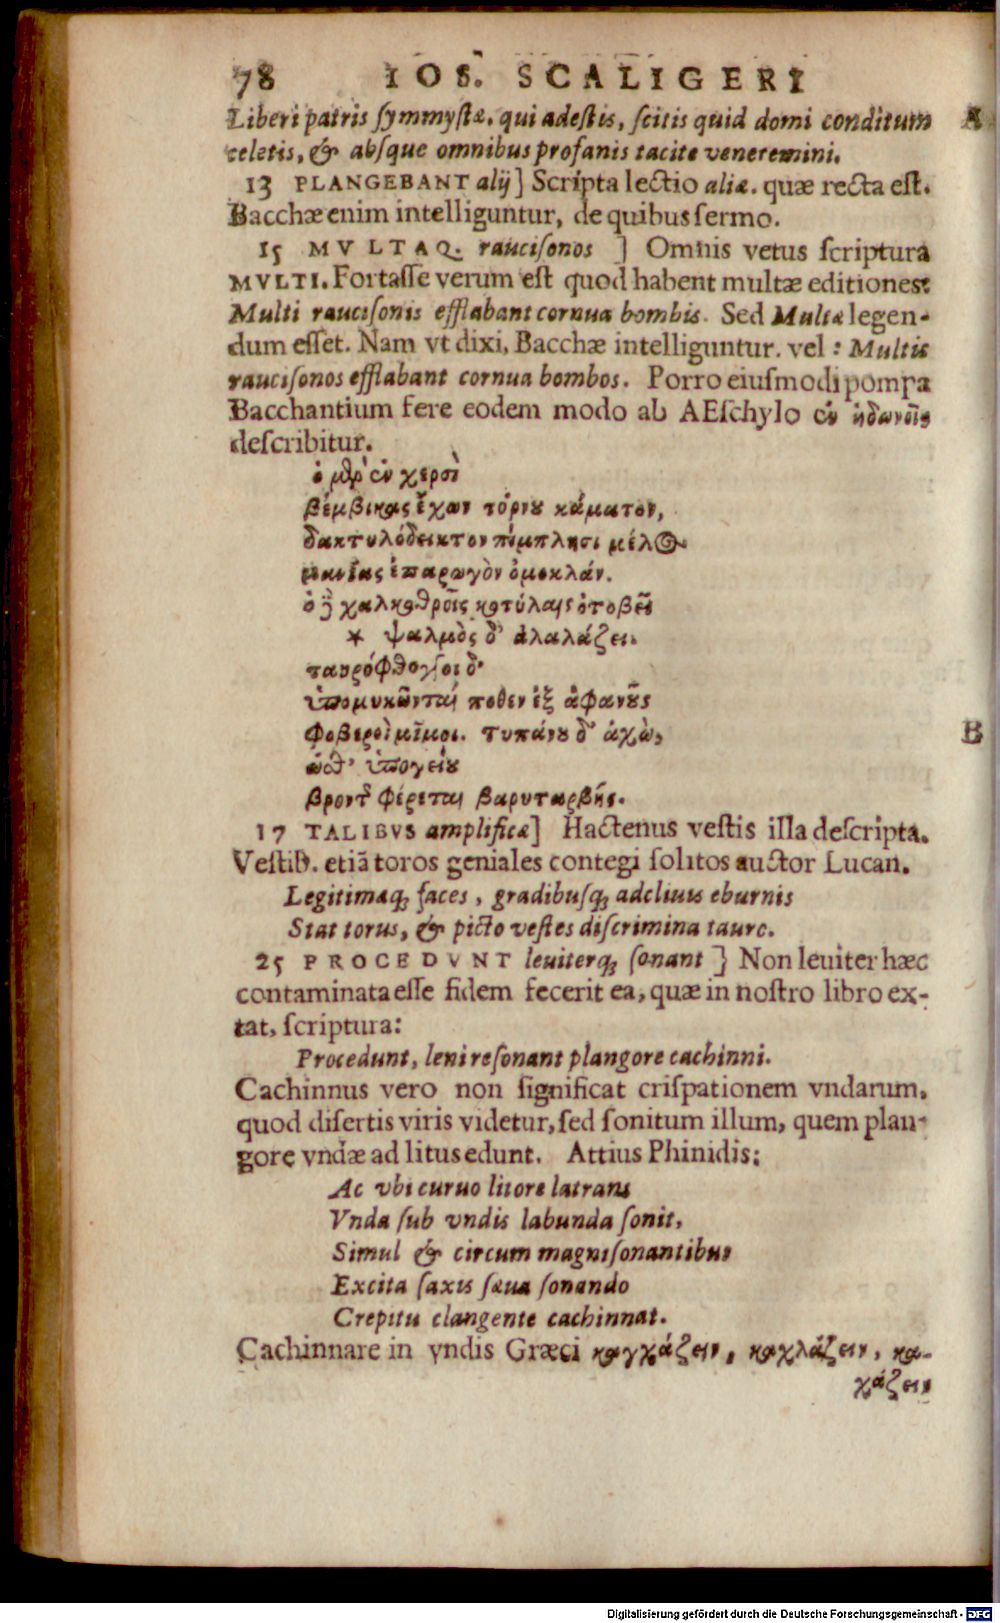 78 IOS. SCALIGERI
Liberi patris ſymmyſtæ, qui adeſtis, ſcitis quid domi conditum A
teletis, & abſque omnibus profanis tacite veneremini.
13 PLANGEBANT alij] Scripta lectio aliæ. quæ recta eſt.
Bacchæ enim intelliguntur, de quibus ſermo.
15 MVLTAQ. rauciſonos ] Omnis vetus ſcriptura
MVLTI. Fortaſſe verum eſt quod habent multæ editiones:
Multi rauciſonis efflabant cornua bombis. Sed Multæ legen-
dum eſſet. Nam vt dixi, Bacchæ intelliguntur. vel : Multis
rauciſonos efflabant cornua bombos. Porro eiuſmodi pompa
Bacchantium fere eodem modo ab AEſchylo ἐν ἠδωνοῖς
deſcribitur.
ὁ μὲν ἐν χερσὶ
βέμβικας ἔχων τόρνου κάματον,
δακτυλόδεικτον πίμπλησι μέλος
μανίας ἐπαρωγὸν ὁμοκλάν.
ὁ δὲ χαλκοθροῖς κοτύλαις ὀτοβεῖ
* ψαλμὸς δ' ἀλαλάζει.
ταυρόφθογγοι δ'
ὑπομυκῶνται ποθεν ἐξ ἀφανοῦς
φοβεροὶ μῖμοι. τυπάνου δ' ἀχὼ,
ὥσθ' ὑπογείου
βροντῆς φέρεται βαρυταρβής.
17 TALIBVS amplificæ] Hactenus veſtis illa deſcripta.
Veſtib. etiã toros geniales contegi ſolitos auctor Lucan.
Legitimæq; faces, gradibuſq; adcliuis eburnis
Stat torus, & picto veſtes diſcrimina tauro.
25 PROCEDVNT leuiterq; ſonant ] Non leuiter hæc
contaminata eſſe fidem fecerit ea, quæ in noſtro libro ex-
tat, ſcriptura:
Procedunt, leni reſonant plangore cachinni.
Cachinnus vero non ſignificat criſpationem vndarum,
quod diſertis viris videtur, ſed ſonitum illum, quem plan-
gore vndæ ad litus edunt. Attius Phinidis:
Ac vbi curuo litore latrans
Vnda ſub vndis labunda ſonit,
Simul & circum magniſonantibus
Excita ſaxis ſæua ſonando
Crepitu clangente cachinnat.
Cachinnare in vndis Græci καγχάζειν, καχλάζειν, κα-
χάζειν
B
Digitalisierung gefördert durch die Deutsche Forschungsgemeinschaft - DFG